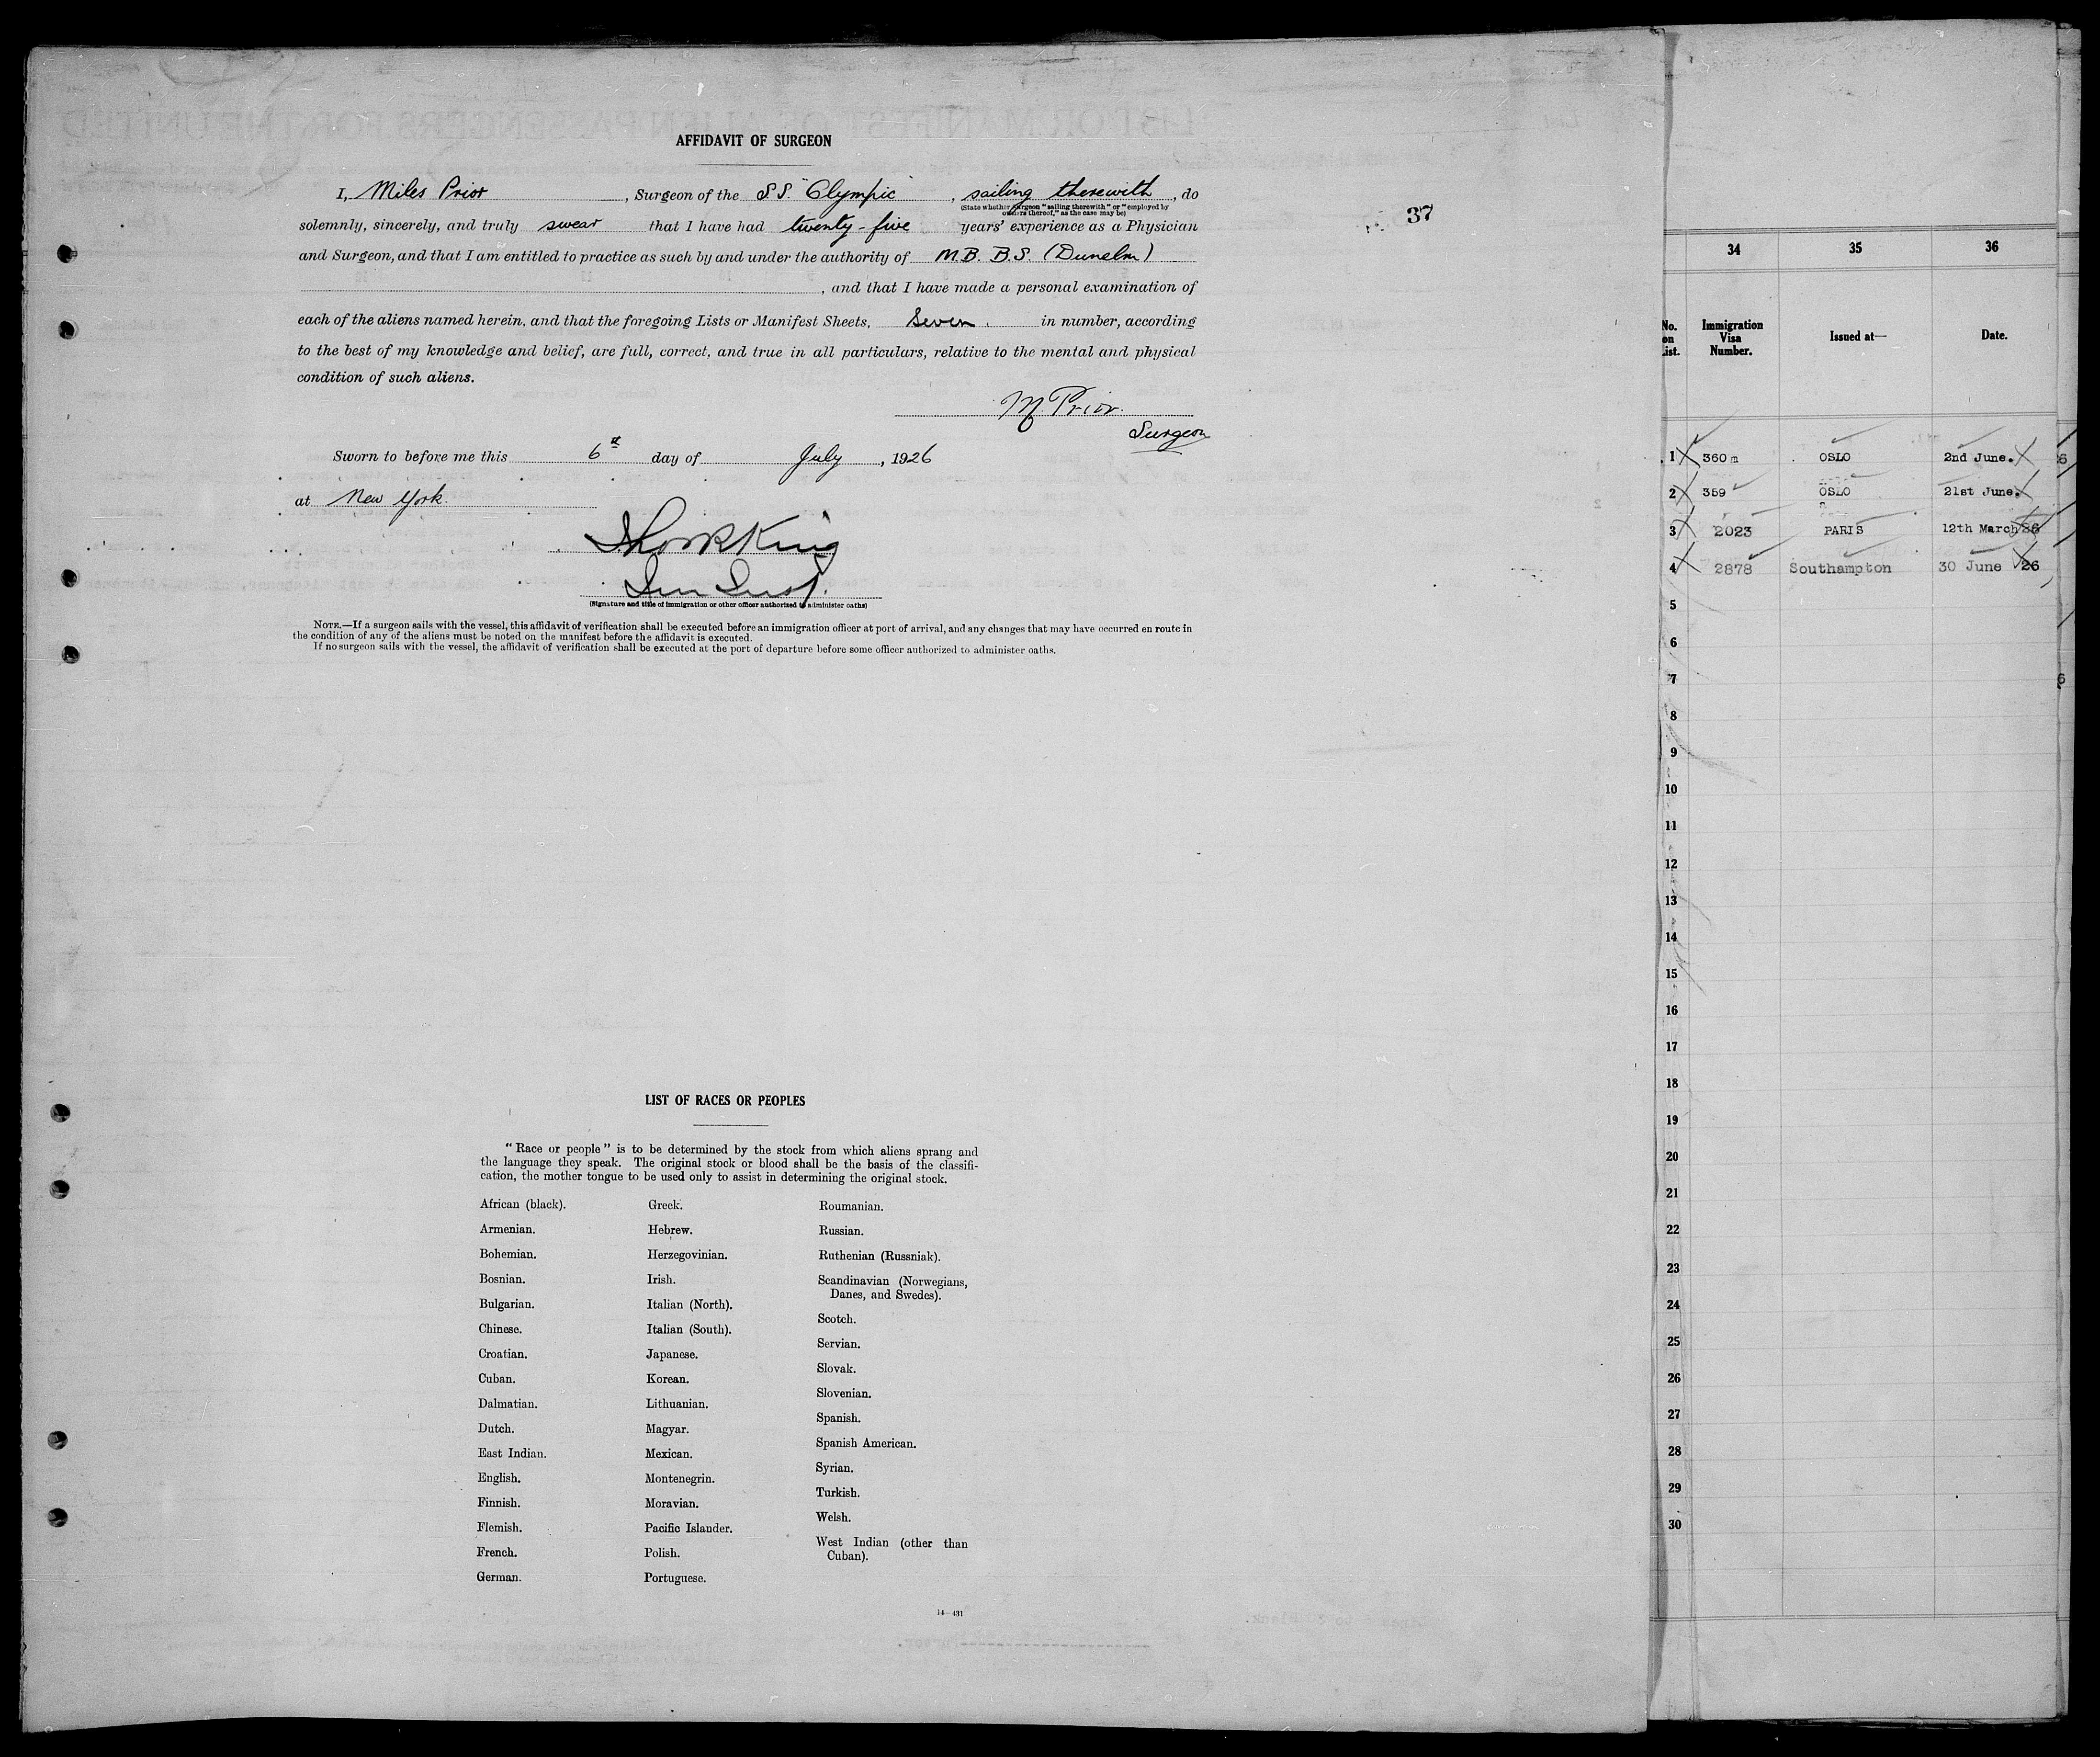 AFFIDAVIT OF SURGEON
I, Miles Prior, Surgeon of the S.S. "Olympic", sailing therewith, do
(State whether surgeon "sailing therewith" or "employed by
owners thereof," as the case may be)
37
solemnly, sincerely, and truly swear that I have had twenty-five years' experience as a Physician
and Surgeon, and that I am entitled to practice as such by and under the authority of M.B. B.S. (Dunelm)
, and that I have made a personal examination of
each of the aliens named herein, and that the foregoing Lists or Manifest Sheets, Seven. in number, according
to the best of my knowledge and belief, are full, correct, and true in all particulars, relative to the mental and physical
condition of such aliens.
M. Prior.
Surgeon
Sworn to before me this 6 day of July, 1926
at New York.
King
(Signature and title of immigration or other officer authorized to administer oaths)
NOTE.—If a surgeon sails with the vessel, this affidavit of verification shall be executed before an immigration officer at port of arrival, and any changes that may have occurred en route in
the condition of any of the aliens must be noted on the manifest before the affidavit is executed.
If no surgeon sails with the vessel, the affidavit of verification shall be executed at the port of departure before some officer authorized to administer oaths.
LIST OF RACES OR PEOPLES
"Race or people" is to be determined by the stock from which aliens sprang and
the language they speak. The original stock or blood shall be the basis of the classifi-
cation, the mother tongue to be used only to assist in determining the original stock.
African (black).
Armenian.
Bohemian.
Bosnian.
Bulgarian.
Chinese.
Croatian.
Cuban.
Dalmatian.
Dutch.
East Indian.
English.
Finnish.
Flemish.
French.
German.
Greek.
Hebrew.
Herzegovinian.
Irish.
Italian (North).
Italian (South).
Japanese.
Korean.
Lithuanian.
Magyar.
Mexican.
Montenegrin.
Moravian.
Pacific Islander.
Polish.
Portuguese.
Roumanian.
Russian.
Ruthenian (Russniak).
Scandinavian (Norwegians,
Danes, and Swedes).
Scotch.
Servian.
Slovak.
Slovenian.
Spanish.
Spanish American.
Syrian.
Turkish.
Welsh.
West Indian (other than
Cuban).
14—431
34 35 36
No.
on
List.
Immigration
Visa
Number.
Issued at—
Date.
1 360m OSLO 2nd June.
2 359 OSLO 21st June.
3 2023 PARIS 12th March 26
4 2878 Southampton 30 June 26
5
6
7
8
9
10
11
12
13
14
15
16
17
18
19
20
21
22
23
24
25
26
27
28
29
30